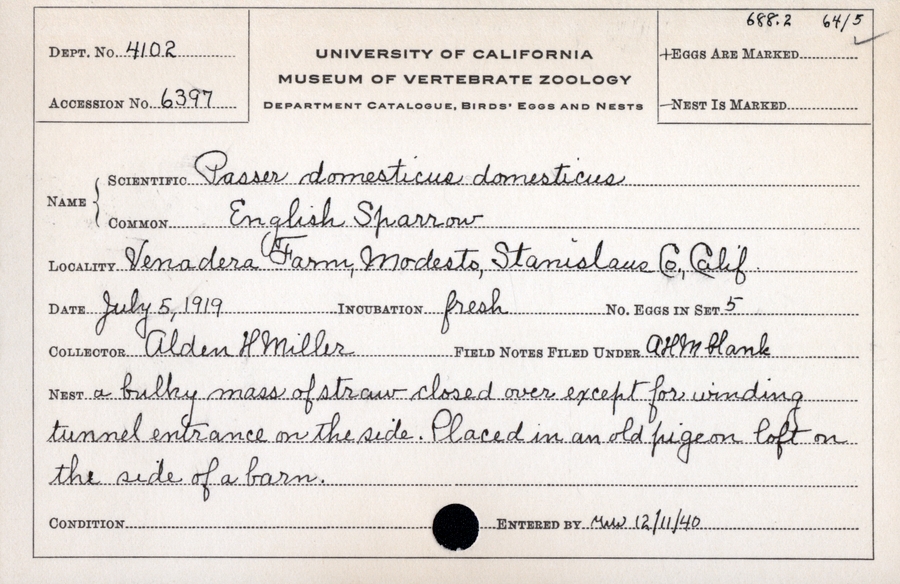 688.2 64/5
DEPT. NO. 4102
ACCESSION NO. 6397
UNIVERSITY OF CALIFORNIA
MUSEUM OF VERTEBRATE ZOOLOGY
DEPARTMENT CATALOGUE, BIRDS' EGGS AND NESTS
+EGGS ARE MARKED
-NEST IS MARKED
NAME
SCIENTIFIC Passer domesticus domesticus
COMMON English Sparrow
LOCALITY Venadera Farm, Modesto, Stanislaus Co., Calif.
DATE July 5, 1919 INCUBATION fresh NO. EGGS IN SET 5
COLLECTOR Alden H Miller FIELD NOTES FILED UNDER AHM blank
NEST a bulky mass of straw closed over except for winding
tunnel entrance on the side. Placed in an old pigeon loft on
the side of a barn.
CONDITION ENTERED BY 12/11/40